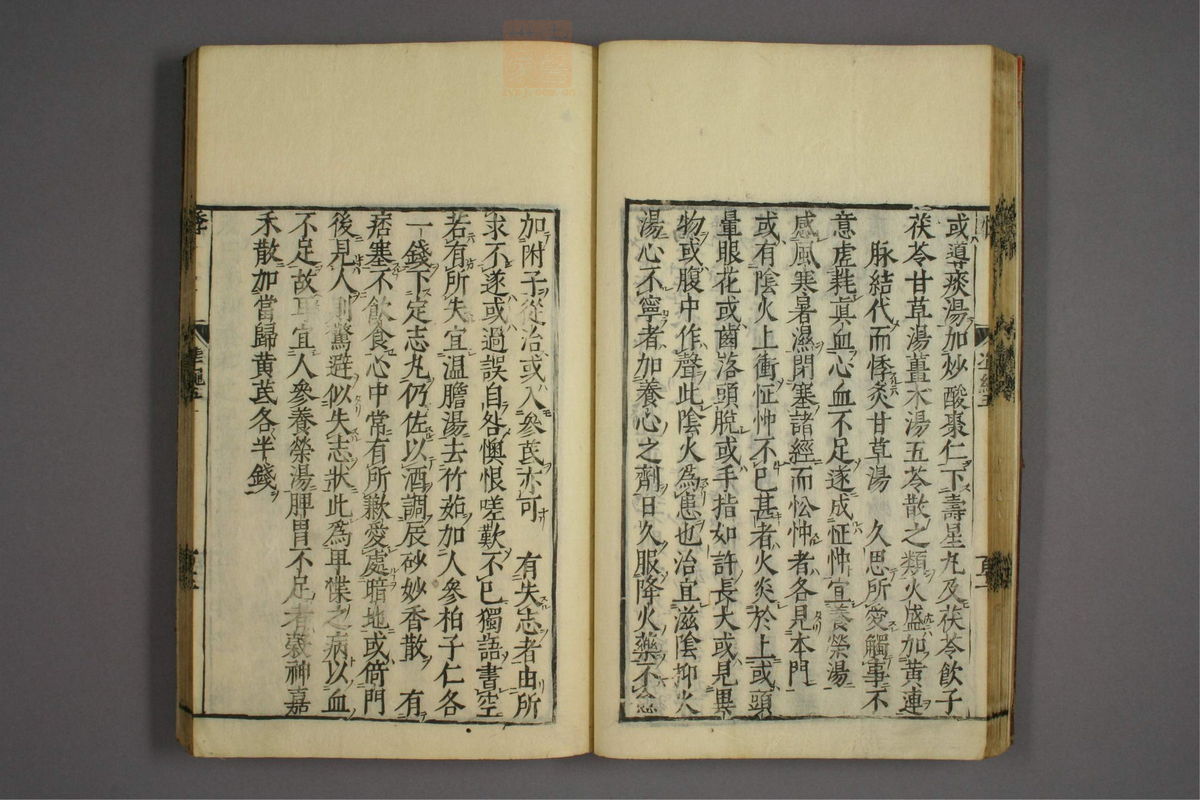 或導痰湯加炒酸棗仁下壽星丸及茯苓飲子
茯苓甘草湯薑朮湯五苓散之類火盛加黄連
脉結代而悸炙甘草湯　久思所愛觸事不
意虚耗眞血心血不足遂成怔忡宜養榮湯
感風寒暑濕閉塞諸經而忪忡者各見本門
或有陰火上衝怔忡不已甚者火炎於上或頭
暈眼花或齒落頭脫或手指如許長大或見異
物或腹中作聲此陰火為患也治宜滋陰抑火
湯心不寧者加養心之劑日久服降火藥不愈
加附子從治或入參芪亦可　有失志者由所
求不遂或過誤自咎懊恨嗟歎不已獨語書空
若有所失宜温膽湯去竹茹加人參柏子仁各
一錢下定志丸仍佐以酒調辰砂妙香散　有
痞塞不飲食心中常有所歉愛處暗地或倚門
後見人則驚避似失志狀此為卑惵之病以血
不足故耳宜人參養榮湯脾胃不足者榖神嘉
禾散加當歸黄芪各半錢